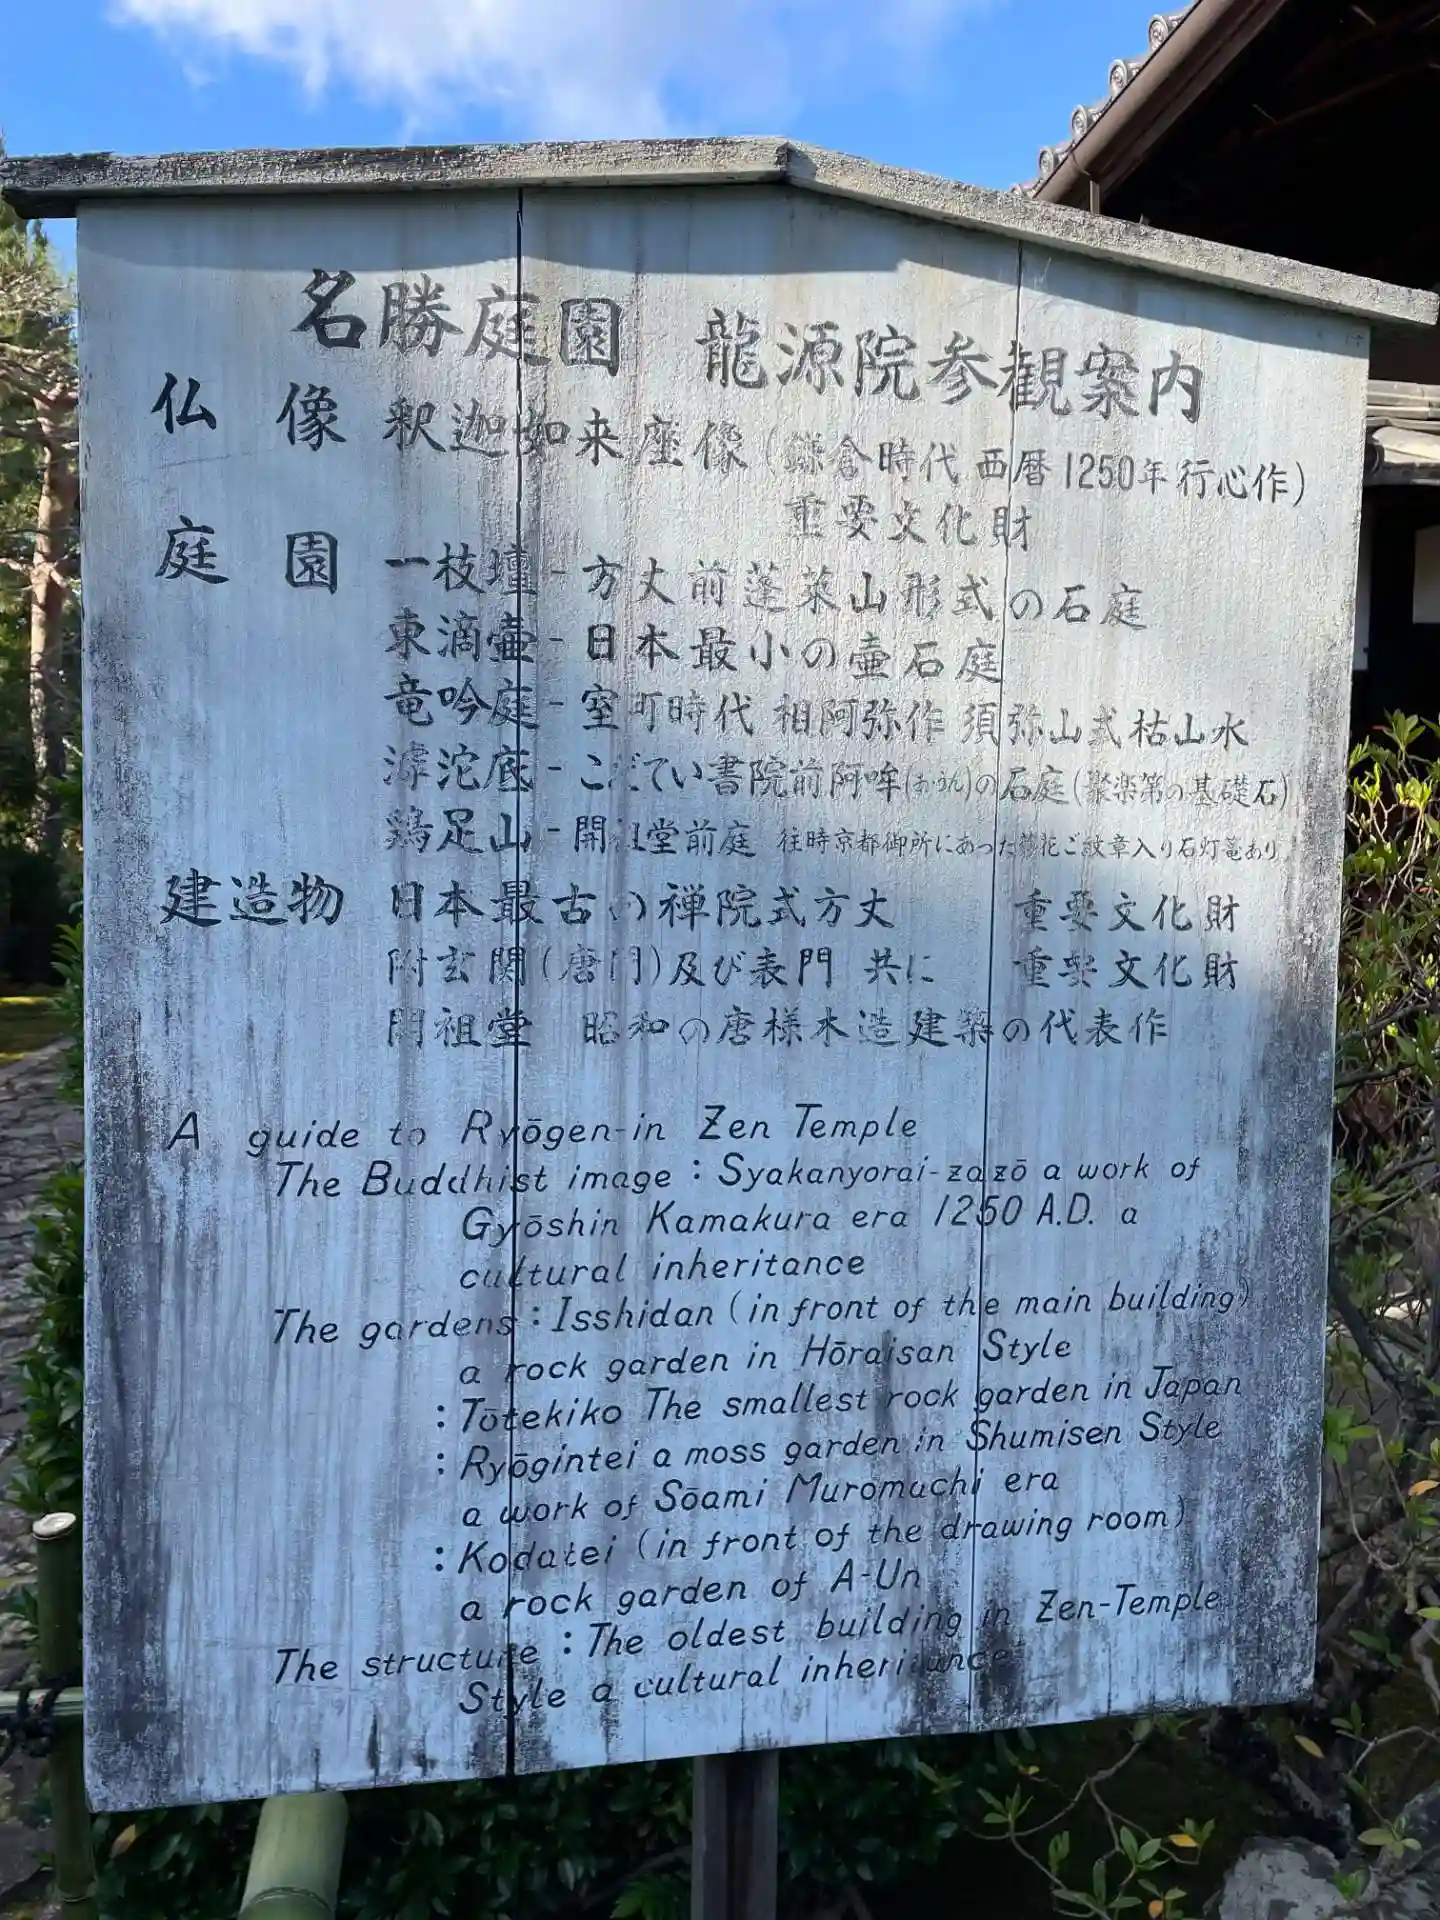 名勝庭園 龍源院参観案内
仏像 釈迦如来座像(鎌倉時代 西暦1250年行心作)
重要文化財
庭園 一枝壇-方丈前蓬莱山形式の石庭
東滴壷-日本最小の壷石庭
竜吟庭-室町時代 相阿弥作 須弥山式枯山水
滹沱底-こだてい書院前阿哞(おうん)の石庭(聚楽第の基礎石)
鶏足山-開祖堂前庭 往時京都御所にあった ご紋章入り石灯篭あり
建造物 日本最古の禅院式方丈 重要文化財
附玄関(唐門)及び表門 共に 重要文化財
開祖堂 昭和の唐様木造建築の代表作
A guide to Ryōgen-in Zen Temple
The Buddhist image : Syakanyorai-zazō a work of
Gyōshin Kamakura era 1250 A.D. a
cultural inheritance
The gardens : Isshidan (in front of the main building)
a rock garden in Hōraisan Style
: Tōtekiko The smallest rock garden in Japan
: Ryōgintei a moss garden in Shumisen Style
a work of Sōami Muromachi era
: Kodatei (in front of the drawing room)
a rock garden of A-Un
The structure : The oldest building in Zen-Temple
Style a cultural inheritance